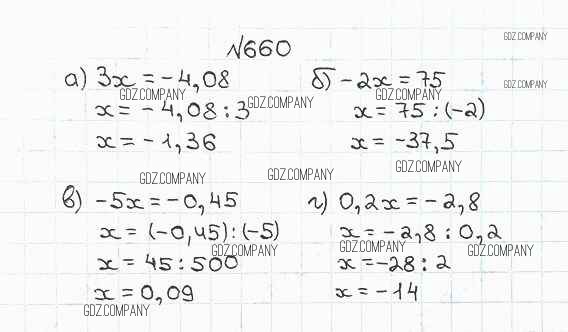 №660
GDZ.COMPANY
а) 3x = -4,08
б) -2x = 75
GDZ.COMPANY
GDZ.COMPANY
GDZ.COMPANY
GDZ.COMPANY
x = -4,08 : 3
x = 75 : (-2)
x = -1,36
x = -37,5
GDZ.COMPANY
GDZ.COMPANY
GDZ.COMPANY
в) -5x = -0,45
г) 0,2x = -2,8
x = (-0,45) : (-5)
x = -2,8 : 0,2
GDZ.COMPANY
GDZ.COMPANY
GDZ.COMPANY
x = 45 : 500
x = -28 : 2
x = 0,09
x = -14
GDZ.COMPANY